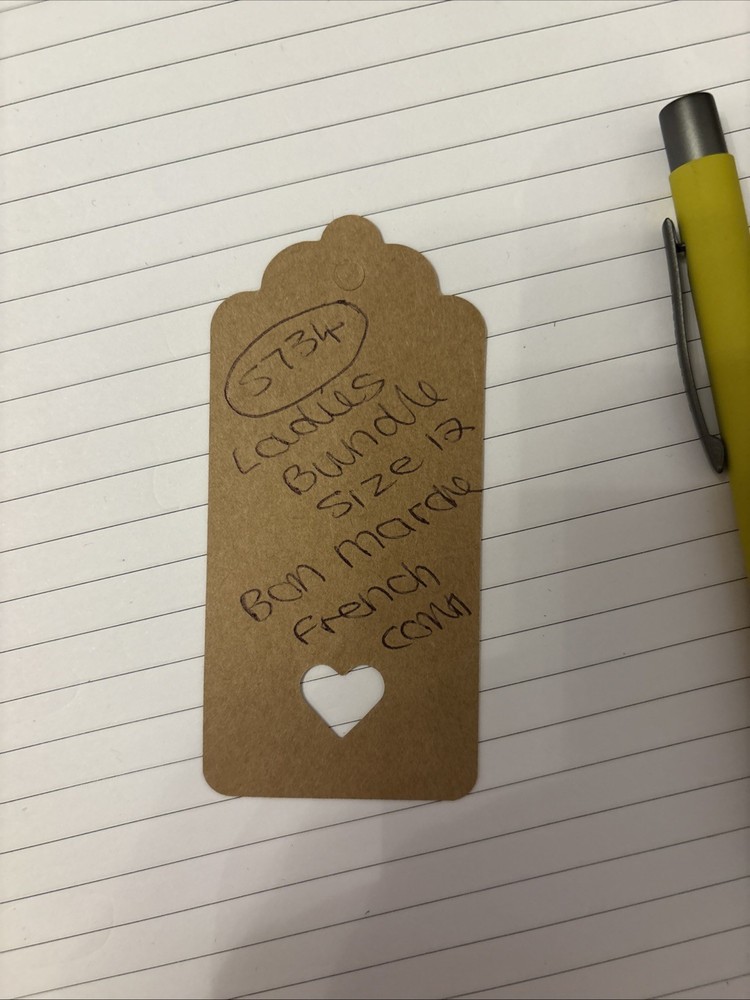 5734
Ladies
Bundle
Size 12
Bon marche
French
conn